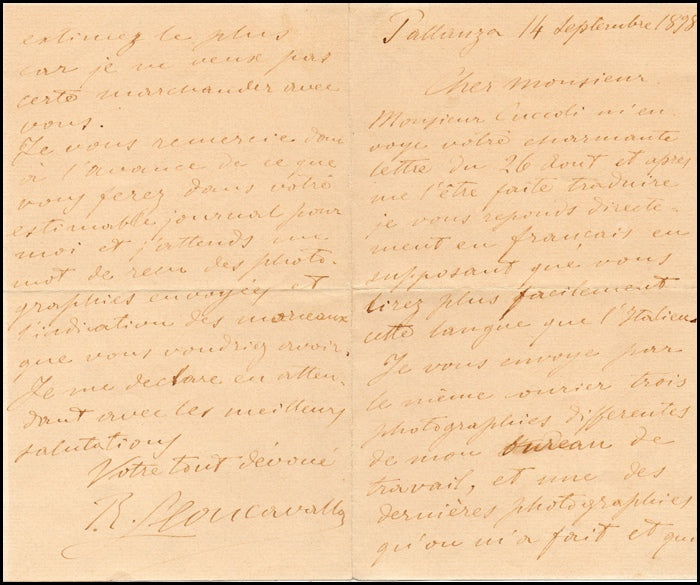 Pallanza 14 Septembre 1898
Cher Monsieur
Monsieur Cuccoli m'en
voye votre charmante
lettre du 26 Aout et après
me l'être faite traduire
je vous reponds directe-
ment en français en
supposant que vous
lirez plus facilement
cette langue que l'Italien.
Je vous envoye par
le même courier trois
photographies differentes
de mon bureau de
travail, et une des
dernières photographies
qu'on m'a fait et que
estimez le plus
car je ne veux pas
certe marchander avec
vous.
Je vous remercie donc
à l'avance de ce que
vous ferez dans votre
estimable journal pour
moi et j'attends un
mot de reçu des photo-
graphies envoyées et
l'indication des morceaux
que vous voudriez avoir.
Je me declare en atten-
dant avec les meilleurs
salutations
Votre tout dévoué
R. Leoncavallo